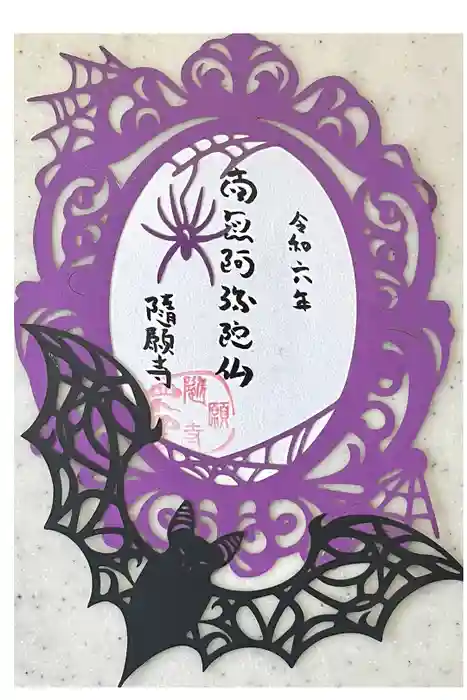 令和六年
南無阿弥陀仏
隨願寺
隨願寺